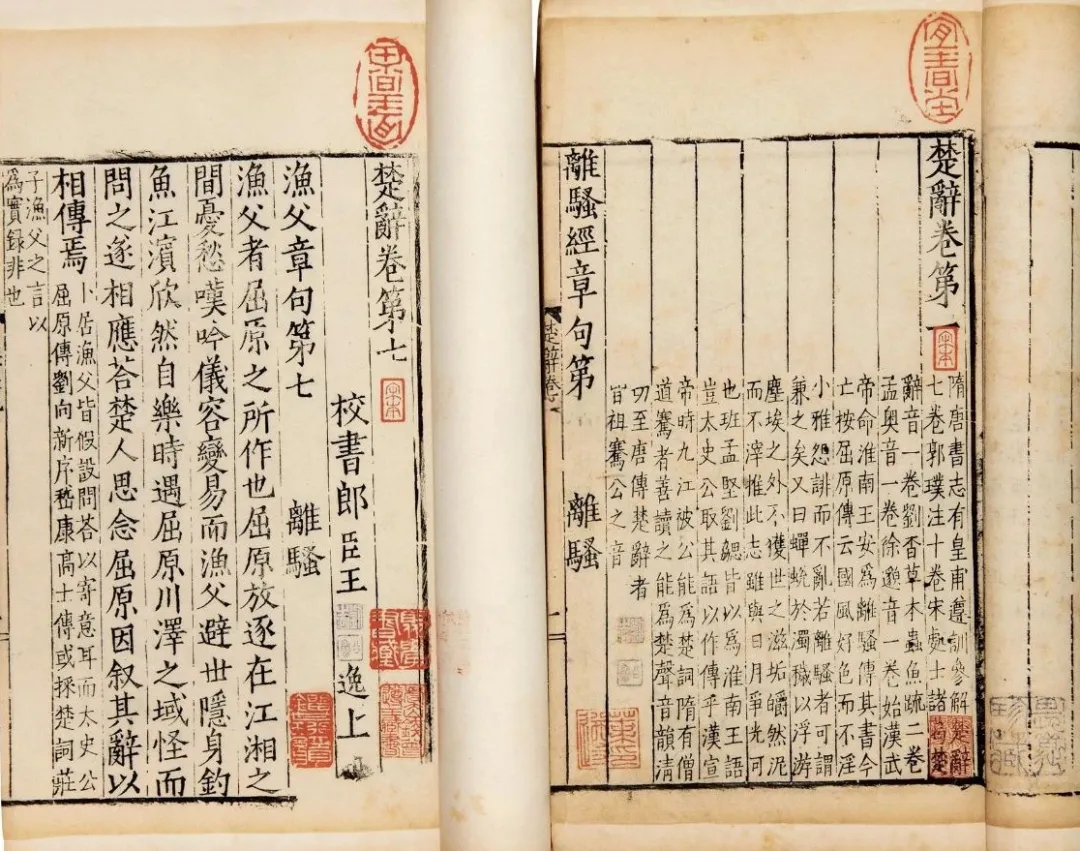 楚辭卷第一
宋本
隋唐書志有皇甫遵訓參解楚辭
七卷郭璞注十卷宋處士諸葛楚
辭音一卷劉杳草木蟲魚疏二卷
孟奧音一卷徐邈音一卷始漢武
帝命淮南王安為離騷傳其書今
亡按屈原傳云國風好色而不淫
小雅怨誹而不亂若離騷者可謂
兼之矣又曰蟬蛻於濁穢以浮游
塵埃之外不獲世之滋垢皭然泥
而不滓推此志雖與日月爭光可
也班孟堅劉勰皆以為淮南王語
豈太史公取其語以作傳乎漢宣
帝時九江被公能為楚詞隋有僧
道騫者善讀之能為楚聲音韻清
切至唐傳楚辭者
皆祖騫公之音
離騷經章句第 離騷
楚辭卷第七
宋本
校書郎臣王逸上
漁父章句第七 離騷
漁父者屈原之所作也屈原放逐在江湘之
間憂愁嘆吟儀容變易而漁父避世隱身釣
魚江濱欣然自樂時遇屈原川澤之域怪而
問之遂相應荅楚人思念屈原因叙其辭以
相傳焉
卜居漁父皆假設問荅以寄意耳而太史公
屈原傳劉向新序嵇康高士傳或採楚詞莊
子漁父之言以
為實録非也